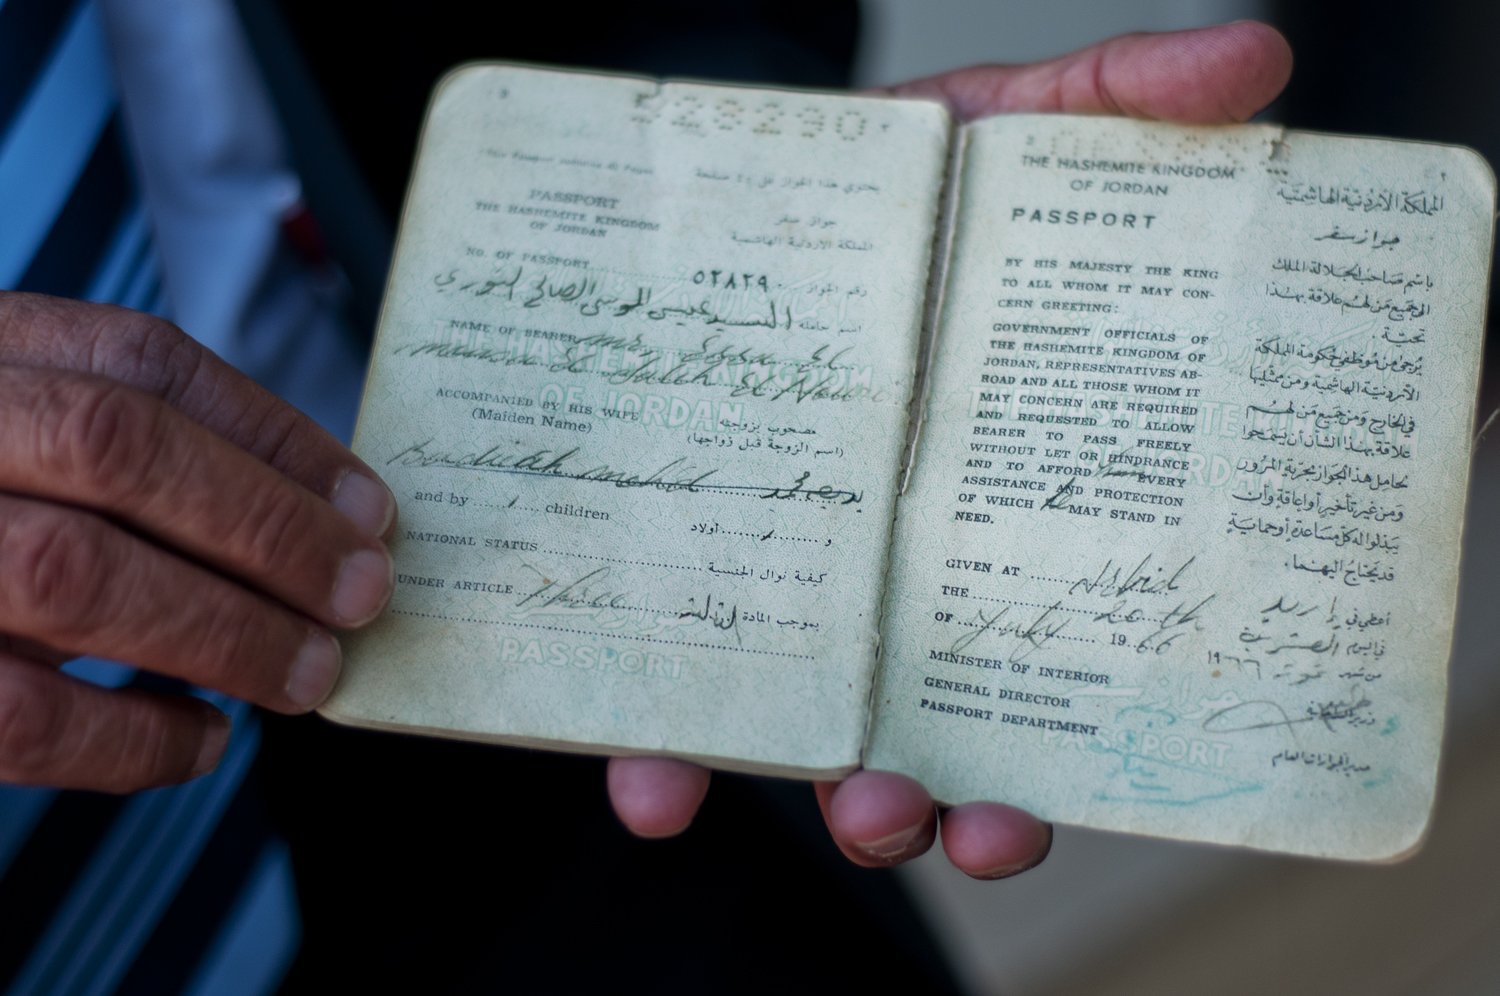 528290
يحتوي هذا الجواز على ٤٠ صفحة
PASSPORT
THE HASHEMITE KINGDOM
OF JORDAN
جواز سفر
المملكة الاردنية الهاشمية
NO. OF PASSPORT ٥٢٨٢٩ رقم الجواز
السيد عيسى الموسى الصالح اسم حامله
NAME OF BEARER Mr. Essa El
Mousa El Saleh El
ACCOMPANIED BY HIS WIFE مصحوب بزوجته
(Maiden Name) (اسم الزوجة قبل زواجها)
and by / children و / أولاد
NATIONAL STATUS كيفية نوال الجنسية
UNDER ARTICLE Three بموجب المادة
PASSPORT
THE HASHEMITE KINGDOM
OF JORDAN
PASSPORT
BY HIS MAJESTY THE KING
TO ALL WHOM IT MAY CON-
CERN GREETING:
GOVERNMENT OFFICIALS OF
THE HASHEMITE KINGDOM OF
JORDAN, REPRESENTATIVES AB-
ROAD AND ALL THOSE WHOM IT
MAY CONCERN ARE REQUIRED
AND REQUESTED TO ALLOW
BEARER TO PASS FREELY
WITHOUT LET OR HINDRANCE
AND TO AFFORD him EVERY
ASSISTANCE AND PROTECTION
OF WHICH he MAY STAND IN
NEED.
GIVEN AT Irbid
THE 20th
OF July 1966
MINISTER OF INTERIOR
GENERAL DIRECTOR
PASSPORT DEPARTMENT
٢
المملكة الاردنية الهاشمية
جواز سفر
باسم صاحب الجلالة الملك
الى جميع من لهم علاقة بهذا
تحية.
يرجى من موظفي حكومة المملكة
الاردنية الهاشمية ومن ممثليها
في الخارج ومن جميع من لهم
علاقة بهذا الشأن أن يسمحوا
لحامل هذا الجواز بحرية المرور
ومن غير تأخير أو اعاقة وأن
يبذلوا له كل مساعدة أو حماية
قد يحتاج اليهما.
أعطي في إربد
في اليوم العشرين
من شهر تموز ١٩٦٦
وزير الداخلية
مدير الجوازات العام